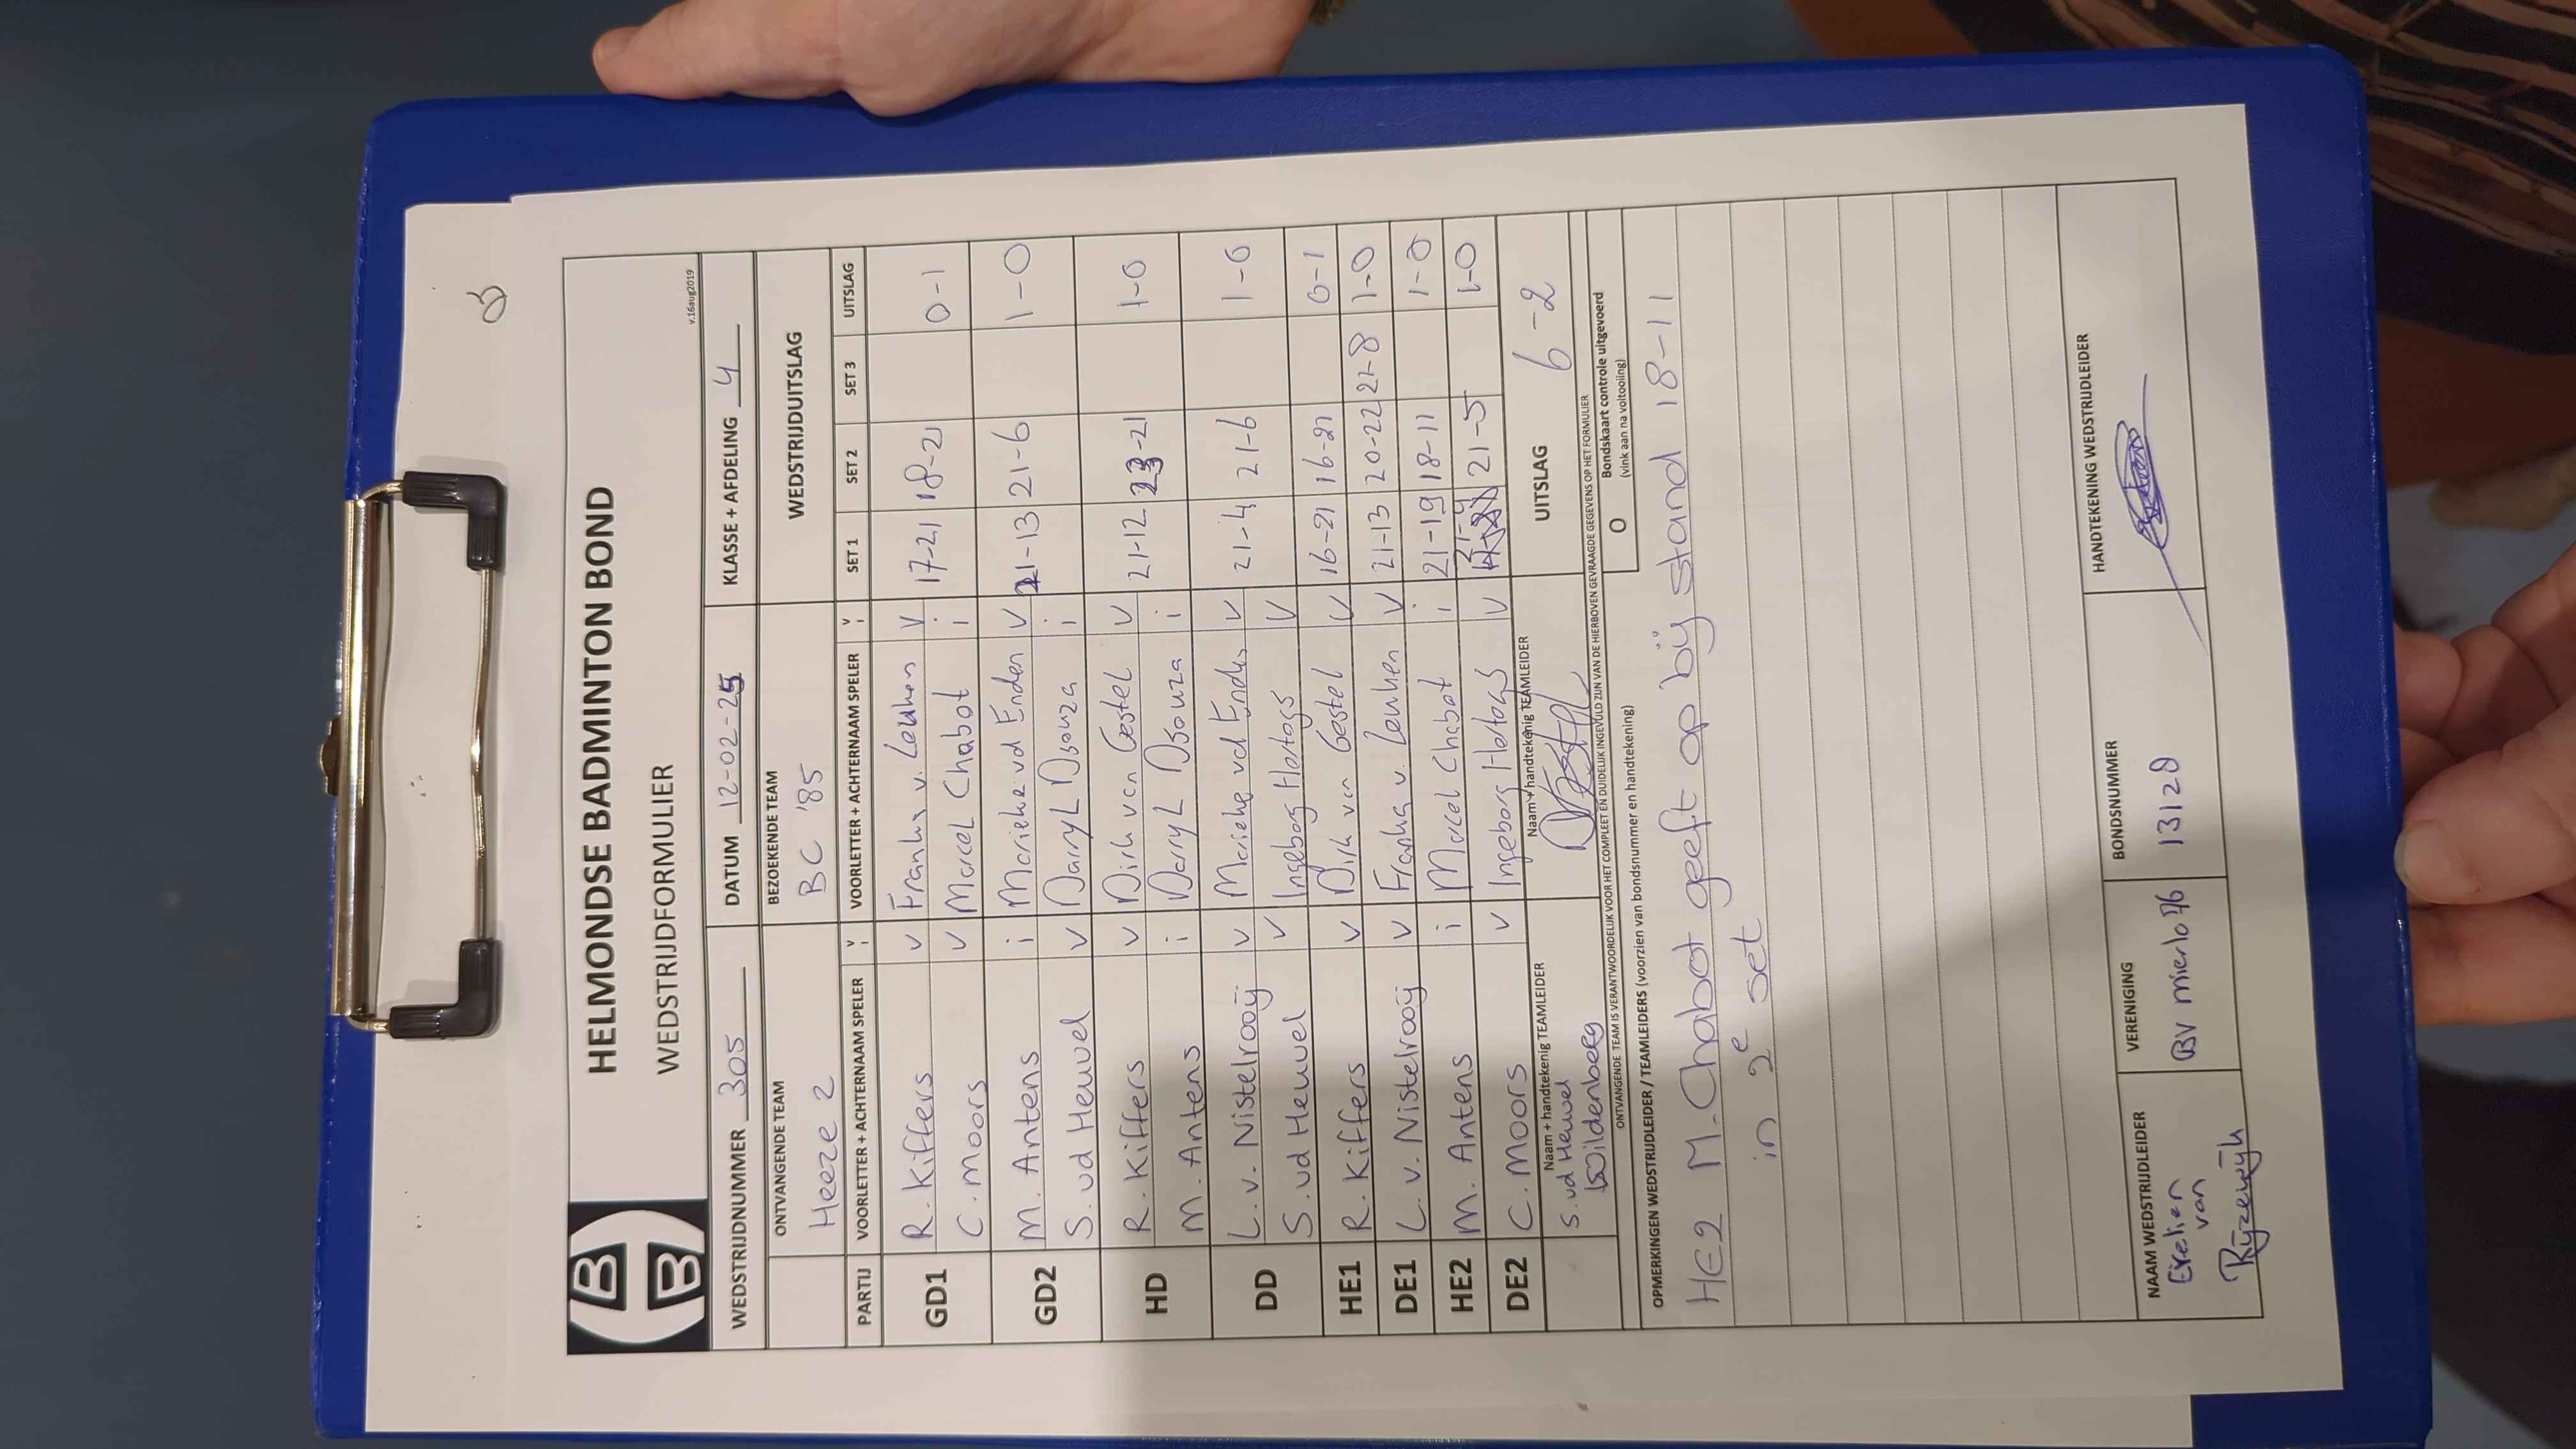 2
HELMONDSE BADMINTON BOND
WEDSTRIJDFORMULIER
v.16aug2019
WEDSTRIJDNUMMER 305 DATUM 12-02-25 KLASSE + AFDELING 4
ONTVANGENDE TEAM BEZOEKENDE TEAM WEDSTRIJDUITSLAG
Heeze 2 BC '85
PARTIJ VOORLETTER + ACHTERNAAM SPELER V i VOORLETTER + ACHTERNAAM SPELER V i SET 1 SET 2 SET 3 UITSLAG
GD1 R. Kiffers v Franka v. Leuken V 17-21 18-21 0-1
C. Moors v Marcel Chabot i
GD2 M. Antens i Marieke vd Enden V 21-13 21-6 1-0
S. vd Heuvel v Darryl Dsouza i
HD R. Kiffers v Dirk van Gestel V 21-12 23-21 1-0
M. Antens i Darryl Dsouza i
DD L. v. Nistelrooij v Marieke vd Enden V 21-4 21-6 1-0
S. vd Heuvel v Ingeborg Hertogs V
HE1 R. Kiffers v Dirk van Gestel V 16-21 16-21 0-1
DE1 L. v. Nistelrooij v Franka v. Leuken V 21-13 20-22 21-8 1-0
HE2 M. Antens i Marcel Chabot i 21-19 18-11 1-0
DE2 C. Moors v Ingeborg Hertogs V 21-9 21-5 1-0
Naam + handtekenig TEAMLEIDER Naam + handtekenig TEAMLEIDER UITSLAG 6-2
S. vd Heuvel
ONTVANGENDE TEAM IS VERANTWOORDELIJK VOOR HET COMPLEET EN DUIDELIJK INGEVULD ZIJN VAN DE HIERBOVEN GEVRAAGDE GEGEVENS OP HET FORMULIER
O Bondskaart controle uitgevoerd
(vink aan na voltooiing)
OPMERKINGEN WEDSTRIJDLEIDER / TEAMLEIDERS (voorzien van bondsnummer en handtekening)
HE2 M. Chabot geeft op bij stand 18-11
in 2e set
NAAM WEDSTRIJDLEIDER VERENIGING BONDSNUMMER HANDTEKENING WEDSTRIJDLEIDER
van BV mierlo 76 13128